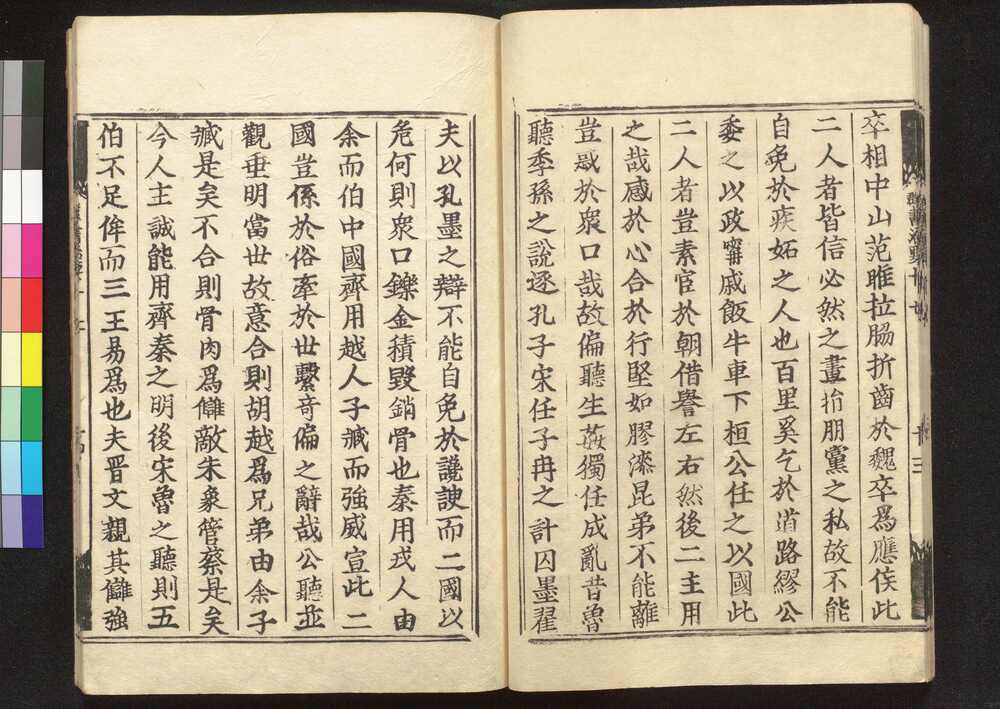 卒相中山范雎拉脇折齒於魏卒爲應侯此
二人者皆信必然之畫捐朋黨之私故不能
自免於疾妬之人也百里奚乞於道路繆公
委之以政甯戚飯牛車下桓公任之以國此
二人者豈素官於朝借譽左右然後二主用
之哉感於心合於行堅如膠漆昆弟不能離
豈惑於衆口哉故偏聽生姦獨任成亂昔魯
聽季孫之說逐孔子宋任子冉之計囚墨翟
夫以孔墨之辯不能自免於讒諛而二國以
危何則衆口鑠金積毀銷骨也秦用戎人由
余而伯中國齊用越人子臧而強威宣此二
國豈係於俗牽於世繫奇偏之辭哉公聽並
觀垂明當世故意合則胡越爲兄弟由余子
臧是矣不合則骨肉爲讎敵朱象管蔡是矣
今人主誠能用齊秦之明後宋魯之聽則五
伯不足侔而三王易爲也夫晉文親其讎強